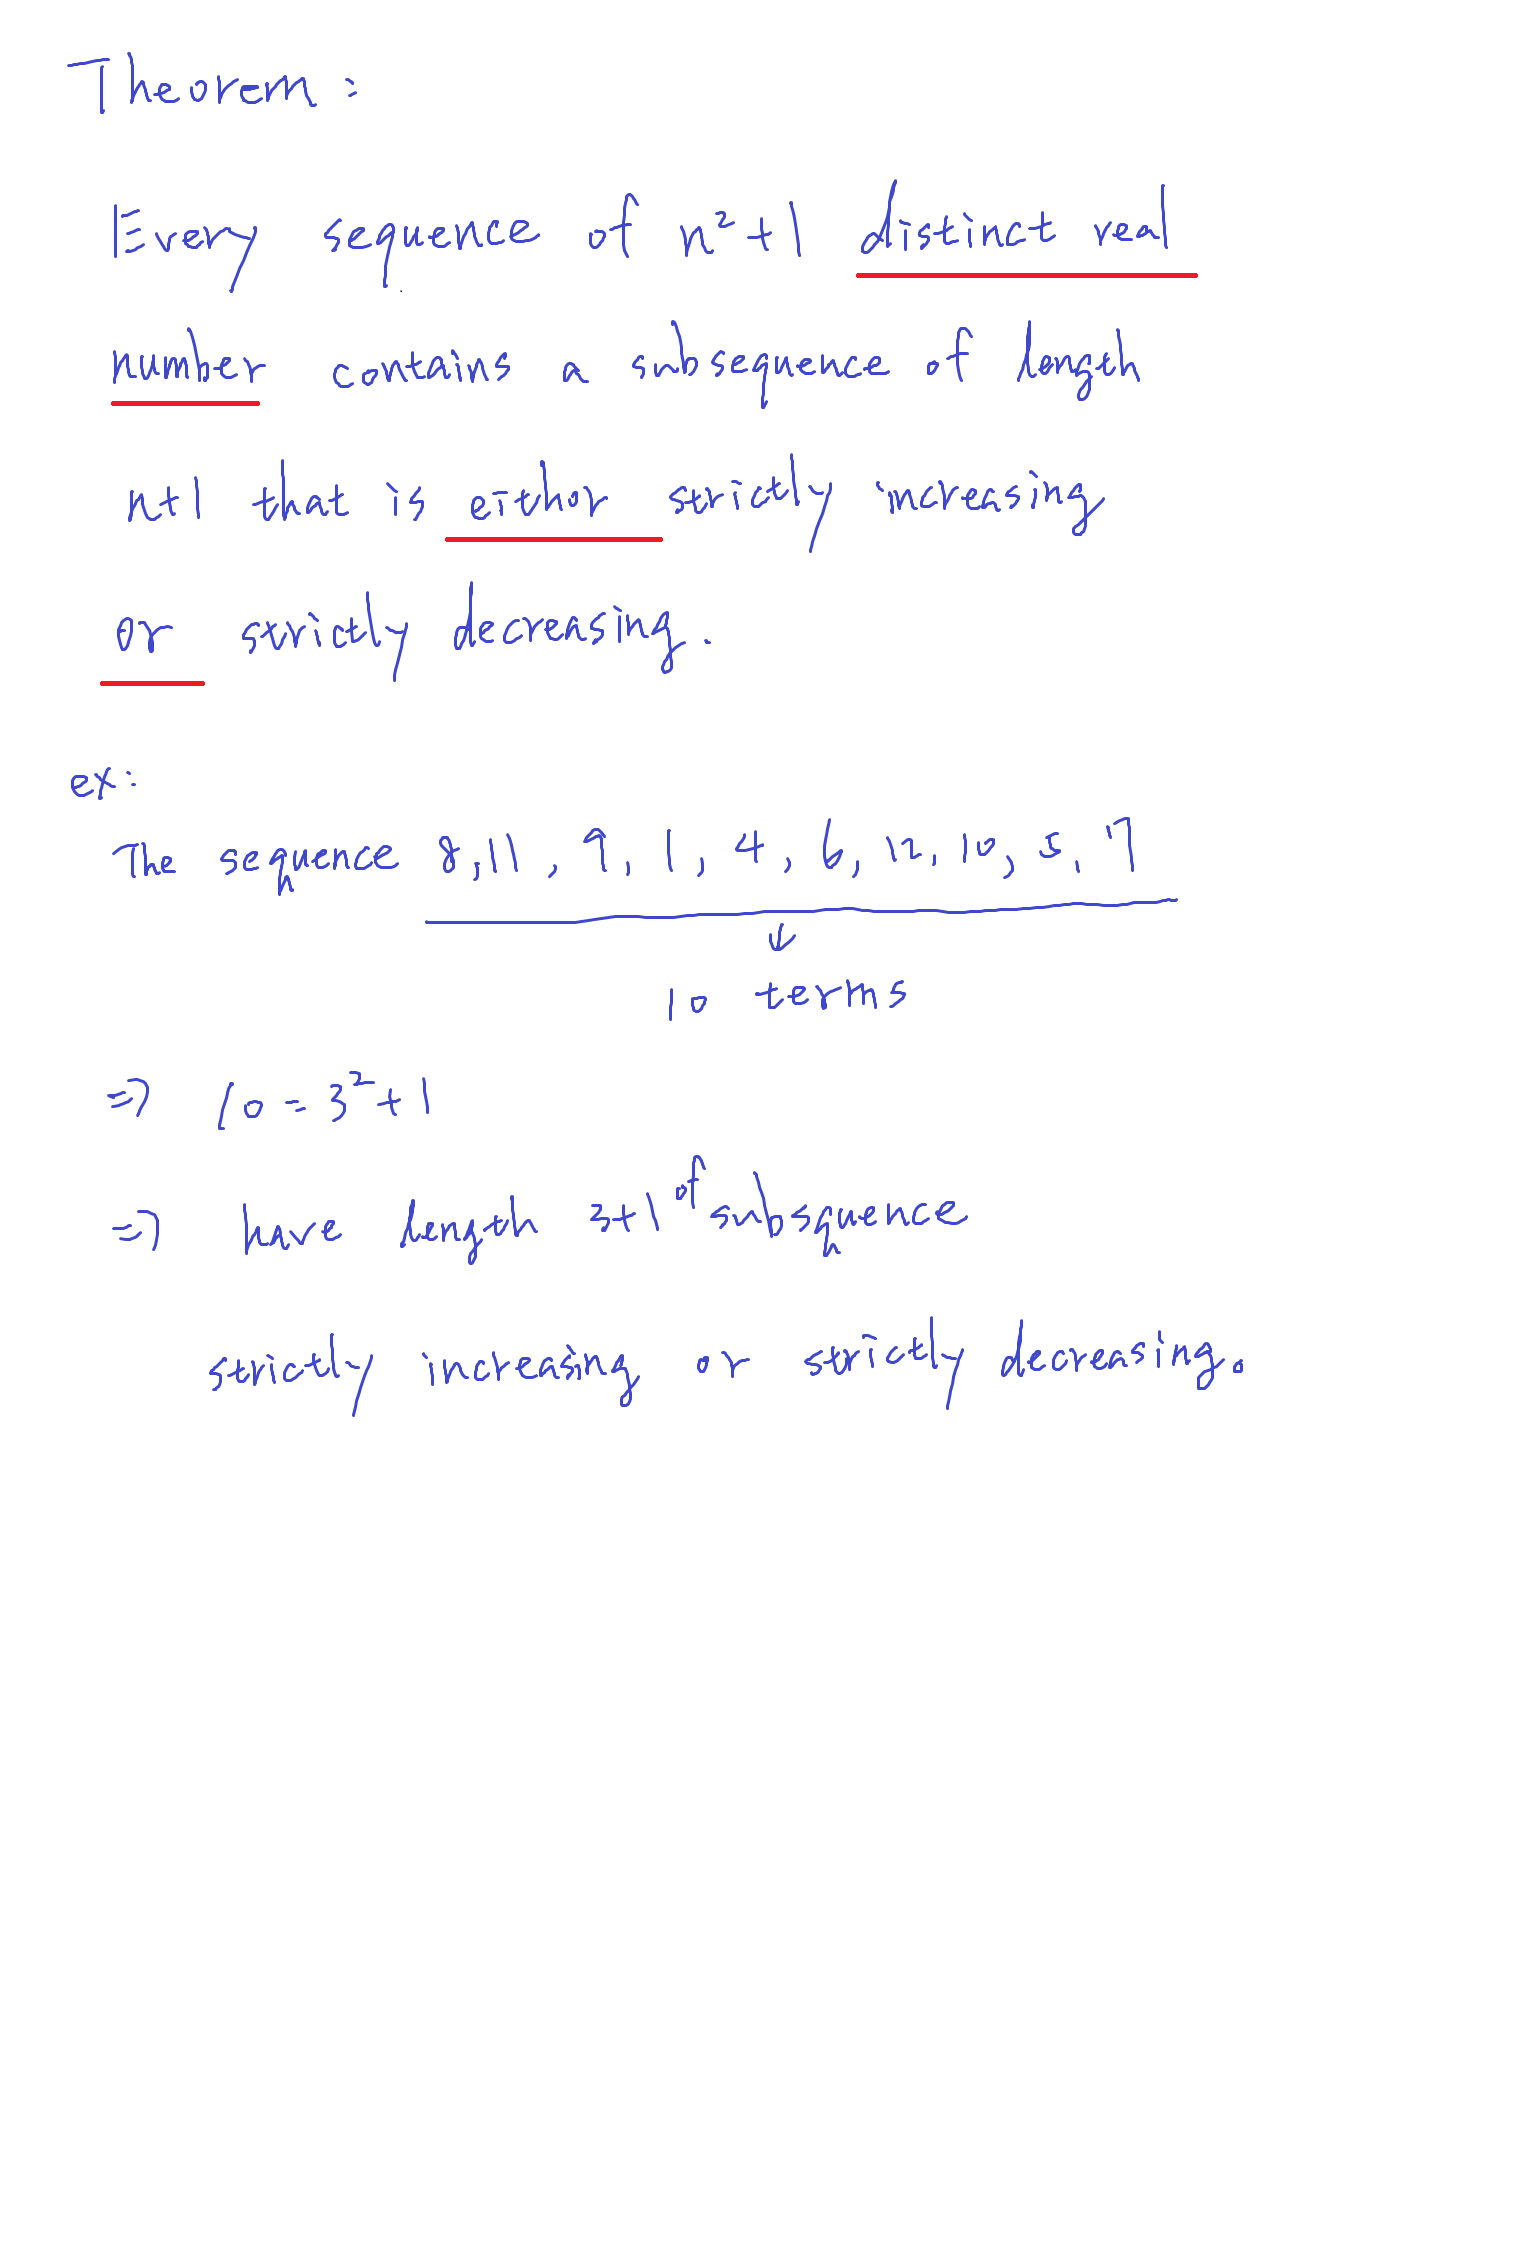 Theorem:
Every sequence of n²+1 distinct real
number contains a subsequence of length
n+1 that is eithor strictly increasing
or strictly decreasing.
ex:
The sequence 8,11, 9, 1, 4, 6, 12, 10, 5, 7
↓
10 terms
⇒ 10=3²+1
⇒ have length 3+1 of subsquence
strictly increasing or strictly decreasing.